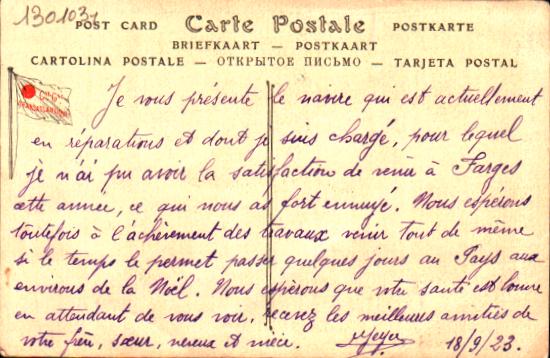 130103
POST CARD Carte Postale POSTKARTE
BRIEFKAART — POSTKAART
CARTOLINA POSTALE — ОТКРЫТОЕ ПИСЬМО — TARJETA POSTAL
Cie Gle TRANSATLANTIQUE
Je vous présente le navire qui est actuellement
en réparations et dont je suis chargé, pour lequel
je n'ai pu avoir la satisfaction de venir à Farges
cette année, ce qui nous a fort ennuyé. Nous espérons
toutefois à l'achèvement des travaux venir tout de même
si le temps le permet passer quelques jours au Pays aux
environs de la Noël. Nous espérons que votre santé est bonne
en attendant de vous voir, recevez les meilleures amitiés de
votre frère, sœur, neveux et nièce.
18/9/23.